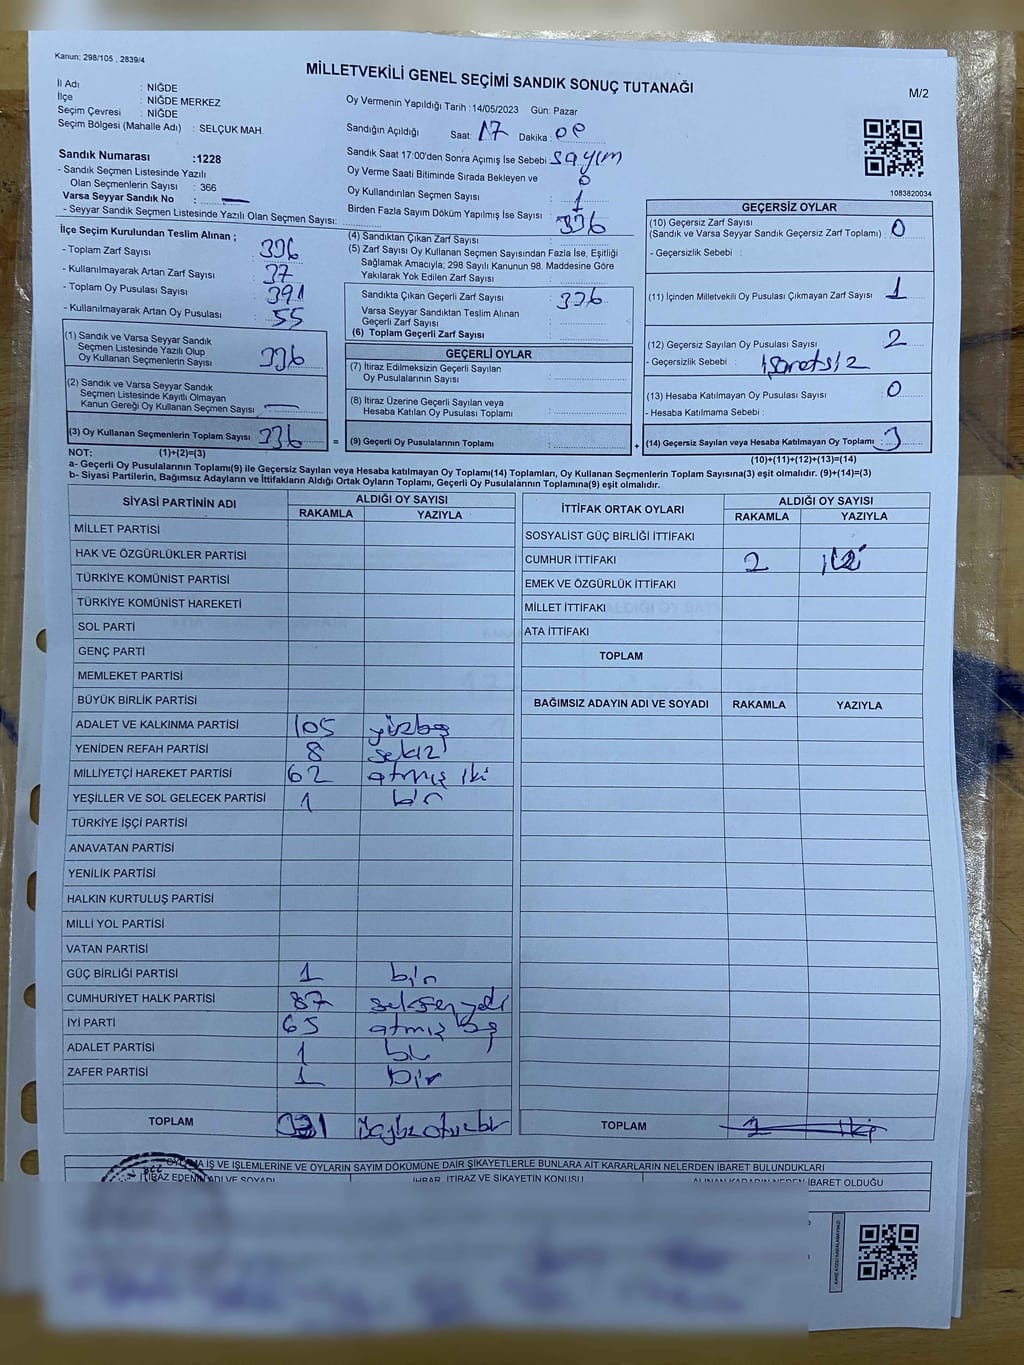 Kanun: 298/105 , 2839/4
MİLLETVEKİLİ GENEL SEÇİMİ SANDIK SONUÇ TUTANAĞI
M/2
İl Adı : NİĞDE
İlçe : NİĞDE MERKEZ
Seçim Çevresi : NİĞDE
Seçim Bölgesi (Mahalle Adı) : SELÇUK MAH.
Sandık Numarası :1228
- Sandık Seçmen Listesinde Yazılı
Olan Seçmenlerin Sayısı : 366
Varsa Seyyar Sandık No : —
- Seyyar Sandık Seçmen Listesinde Yazılı Olan Seçmen Sayısı:
Oy Vermenin Yapıldığı Tarih :14/05/2023 Gün: Pazar
Sandığın Açıldığı Saat: 17 Dakika :
Sandık Saat 17:00'den Sonra Açımış İse Sebebi : sayım
Oy Verme Saati Bitiminde Sırada Bekleyen ve
Oy Kullandırılan Seçmen Sayısı : 0
Birden Fazla Sayım Döküm Yapılmış İse Sayısı : 1
1083820034
İlçe Seçim Kurulundan Teslim Alınan ;
- Toplam Zarf Sayısı :
- Kullanılmayarak Artan Zarf Sayısı : 37
- Toplam Oy Pusulası Sayısı : 391
- Kullanılmayarak Artan Oy Pusulası : 55
(1) Sandık ve Varsa Seyyar Sandık
Seçmen Listesinde Yazılı Olup
Oy Kullanan Seçmenlerin Sayısı : 336
(2) Sandık ve Varsa Seyyar Sandık
Seçmen Listesinde Kayıtlı Olmayan
Kanun Gereği Oy Kullanan Seçmen Sayısı : —
(3) Oy Kullanan Seçmenlerin Toplam Sayısı : 336
(1)+(2)=(3)
(4) Sandıktan Çıkan Zarf Sayısı : 336
(5) Zarf Sayısı Oy Kullanan Seçmen Sayısından Fazla İse, Eşitliği
Sağlamak Amacıyla; 298 Sayılı Kanunun 98. Maddesine Göre
Yakılarak Yok Edilen Zarf Sayısı :
Sandıkta Çıkan Geçerli Zarf Sayısı : 336
Varsa Seyyar Sandıktan Teslim Alınan
Geçerli Zarf Sayısı :
(6) Toplam Geçerli Zarf Sayısı :
GEÇERLİ OYLAR
(7) İtiraz Edilmeksizin Geçerli Sayılan
Oy Pusulalarının Sayısı :
(8) İtiraz Üzerine Geçerli Sayılan veya
Hesaba Katılan Oy Pusulası Toplamı :
= (9) Geçerli Oy Pusulalarının Toplamı : +
GEÇERSİZ OYLAR
(10) Geçersiz Zarf Sayısı
(Sandık ve Varsa Seyyar Sandık Geçersiz Zarf Toplamı) : 0
- Geçersizlik Sebebi :
(11) İçinden Milletvekili Oy Pusulası Çıkmayan Zarf Sayısı : 1
(12) Geçersiz Sayılan Oy Pusulası Sayısı : 2
- Geçersizlik Sebebi : işaretsiz
(13) Hesaba Katılmayan Oy Pusulası Sayısı : 0
- Hesaba Katılmama Sebebi :
(14) Geçersiz Sayılan veya Hesaba Katılmayan Oy Toplamı : 3
(10)+(11)+(12)+(13)=(14)
NOT:
a- Geçerli Oy Pusulalarının Toplamı(9) ile Geçersiz Sayılan veya Hesaba katılmayan Oy Toplam(14) Toplamları, Oy Kullanan Seçmenlerin Toplam Sayısına(3) eşit olmalıdır. (9)+(14)=(3)
b- Siyasi Partilerin, Bağımsız Adayların ve İttifakların Aldığı Ortak Oyların Toplamı, Geçerli Oy Pusulalarının Toplamına(9) eşit olmalıdır.
SİYASİ PARTİNİN ADI ALDIĞI OY SAYISI
RAKAMLA YAZIYLA
MİLLET PARTİSİ
HAK VE ÖZGÜRLÜKLER PARTİSİ
TÜRKİYE KOMÜNİST PARTİSİ
TÜRKİYE KOMÜNİST HAREKETİ
SOL PARTİ
GENÇ PARTİ
MEMLEKET PARTİSİ
BÜYÜK BİRLİK PARTİSİ
ADALET VE KALKINMA PARTİSİ 105 yüzbeş
YENİDEN REFAH PARTİSİ 8 sekiz
MİLLİYETÇİ HAREKET PARTİSİ 62 atmış iki
YEŞİLLER VE SOL GELECEK PARTİSİ 1 bir
TÜRKİYE İŞÇİ PARTİSİ
ANAVATAN PARTİSİ
YENİLİK PARTİSİ
HALKIN KURTULUŞ PARTİSİ
MİLLİ YOL PARTİSİ
VATAN PARTİSİ
GÜÇ BİRLİĞİ PARTİSİ 1 bir
CUMHURİYET HALK PARTİSİ 87 seksenyedi
İYİ PARTİ 65 atmış beş
ADALET PARTİSİ 1 bir
ZAFER PARTİSİ 1 bir
TOPLAM 331
İTTİFAK ORTAK OYLARI ALDIĞI OY SAYISI
RAKAMLA YAZIYLA
SOSYALİST GÜÇ BİRLİĞİ İTTİFAKI
CUMHUR İTTİFAKI 2 iki
EMEK VE ÖZGÜRLÜK İTTİFAKI
MİLLET İTTİFAKI
ATA İTTİFAKI
TOPLAM
BAĞIMSIZ ADAYIN ADI VE SOYADI RAKAMLA YAZIYLA
TOPLAM 2 iki
OYLAMA İŞ VE İŞLEMLERİNE VE OYLARIN SAYIM DÖKÜMÜNE DAİR ŞİKAYETLERLE BUNLARA AİT KARARLARIN NELERDEN İBARET BULUNDUKLARI
İTİRAZ EDENİN ADI VE SOYADI İHBAR, İTİRAZ VE ŞİKAYETİN KONUSU ALINAN KARARIN NEDEN İBARET OLDUĞU